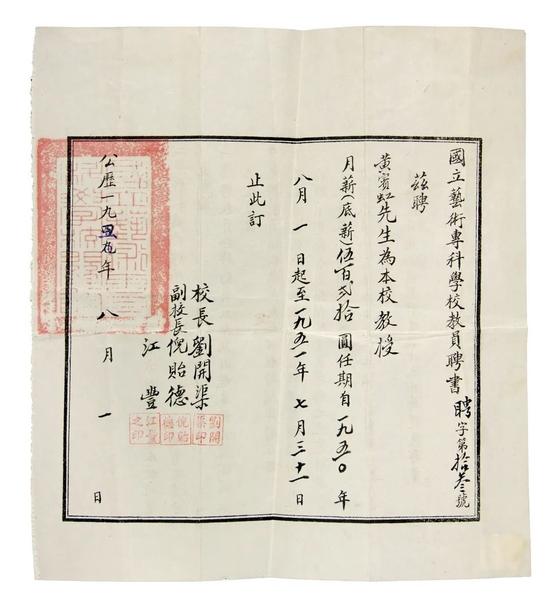 國立藝術專科學校教員聘書 聘字第拾叁號
茲聘
黃賓虹先生為本校教授
月薪(底薪)伍百弍拾圓任期自一九五〇年
八月一日起至一九五一年七月三十一日
止此訂
校長劉開渠
副校長倪貽德
江豐
劉開渠印
倪貽德印
江豐之印
公歷一九年八月一日